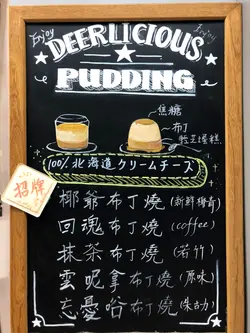 Enjoy
Enjoy
DEERLICIOUS
★ PUDDING ★
焦糖
布丁
100% 北海道クリームチーズ
招牌
椰爺布丁燒(新鮮椰青)
回魂布丁燒(coffee)
抹茶布丁燒(若竹)
雲呢拿布丁燒(原味)
忘憂咭布丁燒(朱古力)